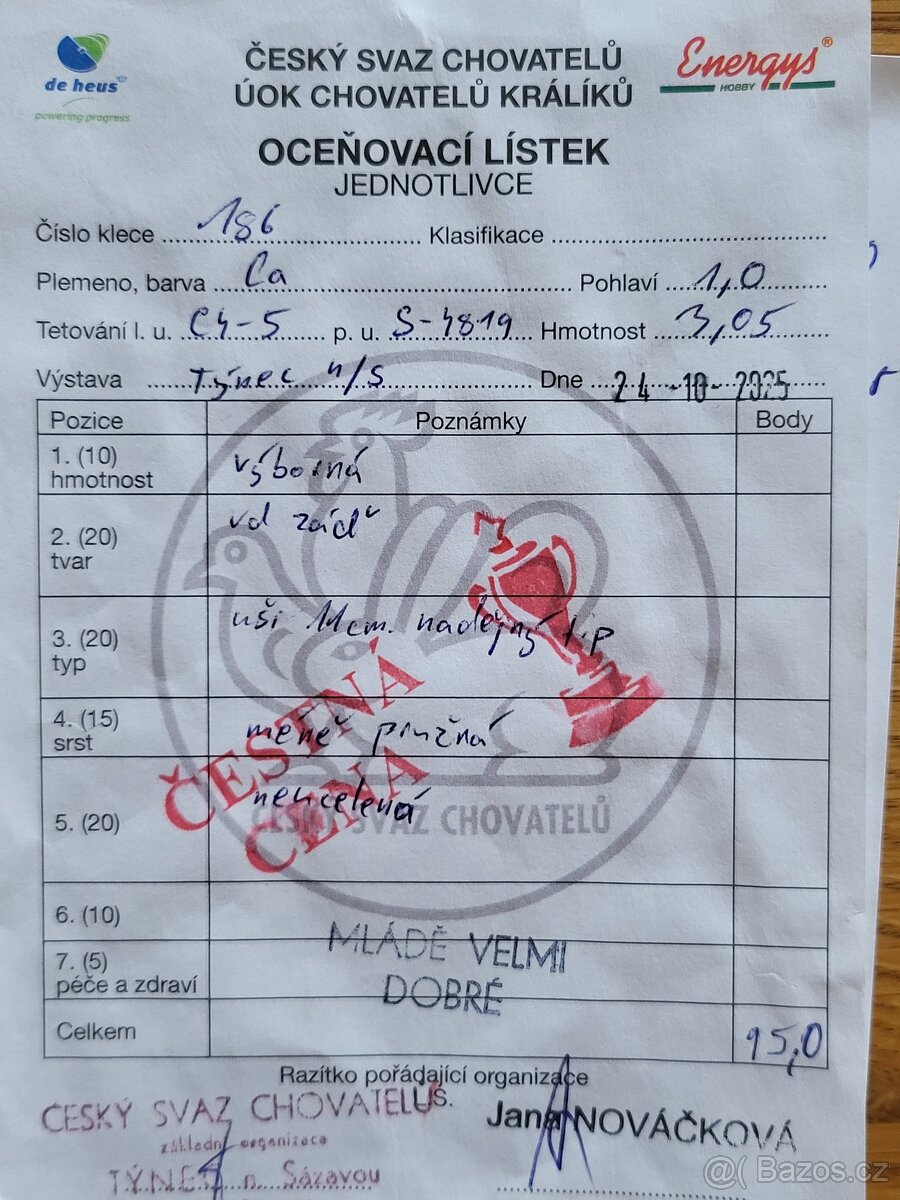 de heus
powering progress
ČESKÝ SVAZ CHOVATELŮ
ÚOK CHOVATELŮ KRÁLÍKŮ
Energys®
HOBBY
OCEŇOVACÍ LÍSTEK
JEDNOTLIVCE
Číslo klece 186 Klasifikace
Plemeno, barva Ca Pohlaví 1,0
Tetování l. u. C4-5 p. u. S-4819 Hmotnost 3,05
Výstava Týnec n/S Dne 24 -10- 2025
Pozice Poznámky Body
1. (10) výborná
hmotnost
2. (20) vd záď
tvar
3. (20) uši 11cm. nadějný typ
typ
4. (15) méně pružná
srst
5. (20) neucelená
ČESTNÁ
CENA
ČESKÝ SVAZ CHOVATELŮ
6. (10)
MLÁDĚ VELMI
DOBRÉ
7. (5)
péče a zdraví
Celkem 95,0
Razítko pořádající organizace
ČESKÝ SVAZ CHOVATELŮ
základní organizace
TÝNEC n. Sázavou
Jana NOVÁČKOVÁ
@( Bazos.cz